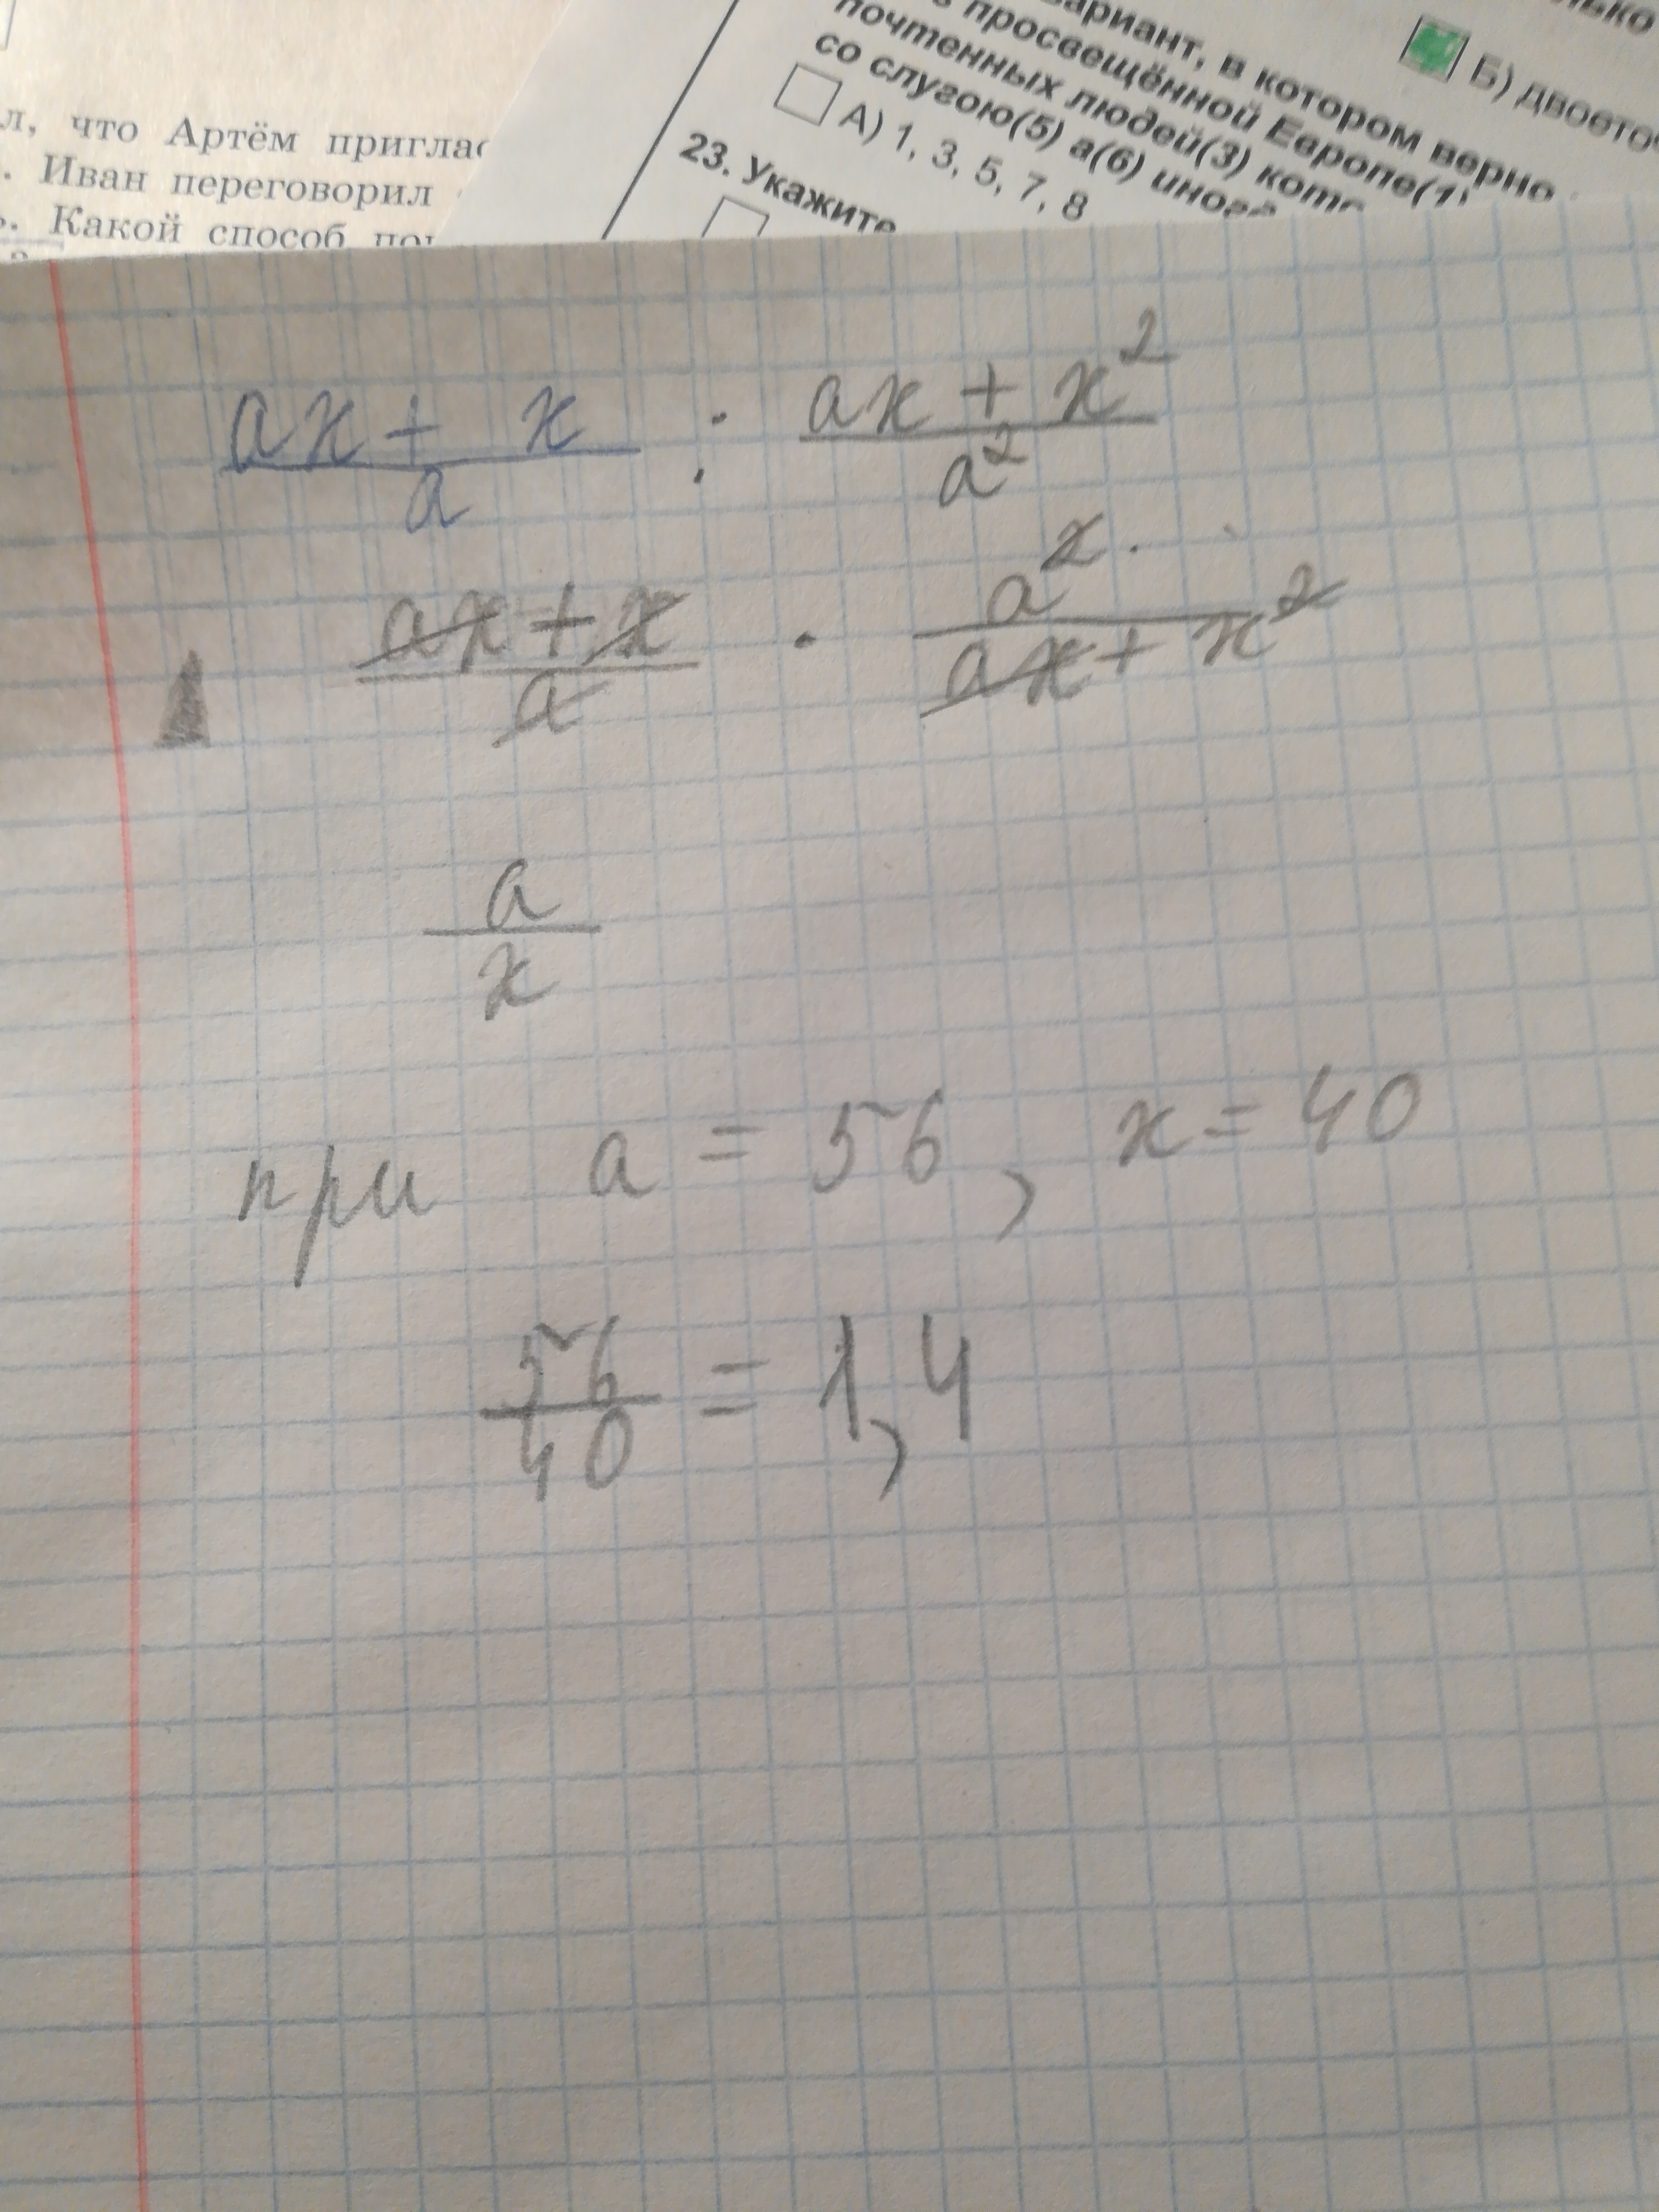 л, что Артём
. Иван переговорил
. Какой способ
лько
Б)
вариант, в котором верно
просвещённой Европе(1)
почтенных людей(3)
со слугою(5) а(6)
А) 1, 3, 5, 7, 8
23. Укажите
ax + x / a : ax + x² / a²
ax + x / a · a² / ax + x²
a / x
при a = 56, x = 40
56 / 40 = 1,4